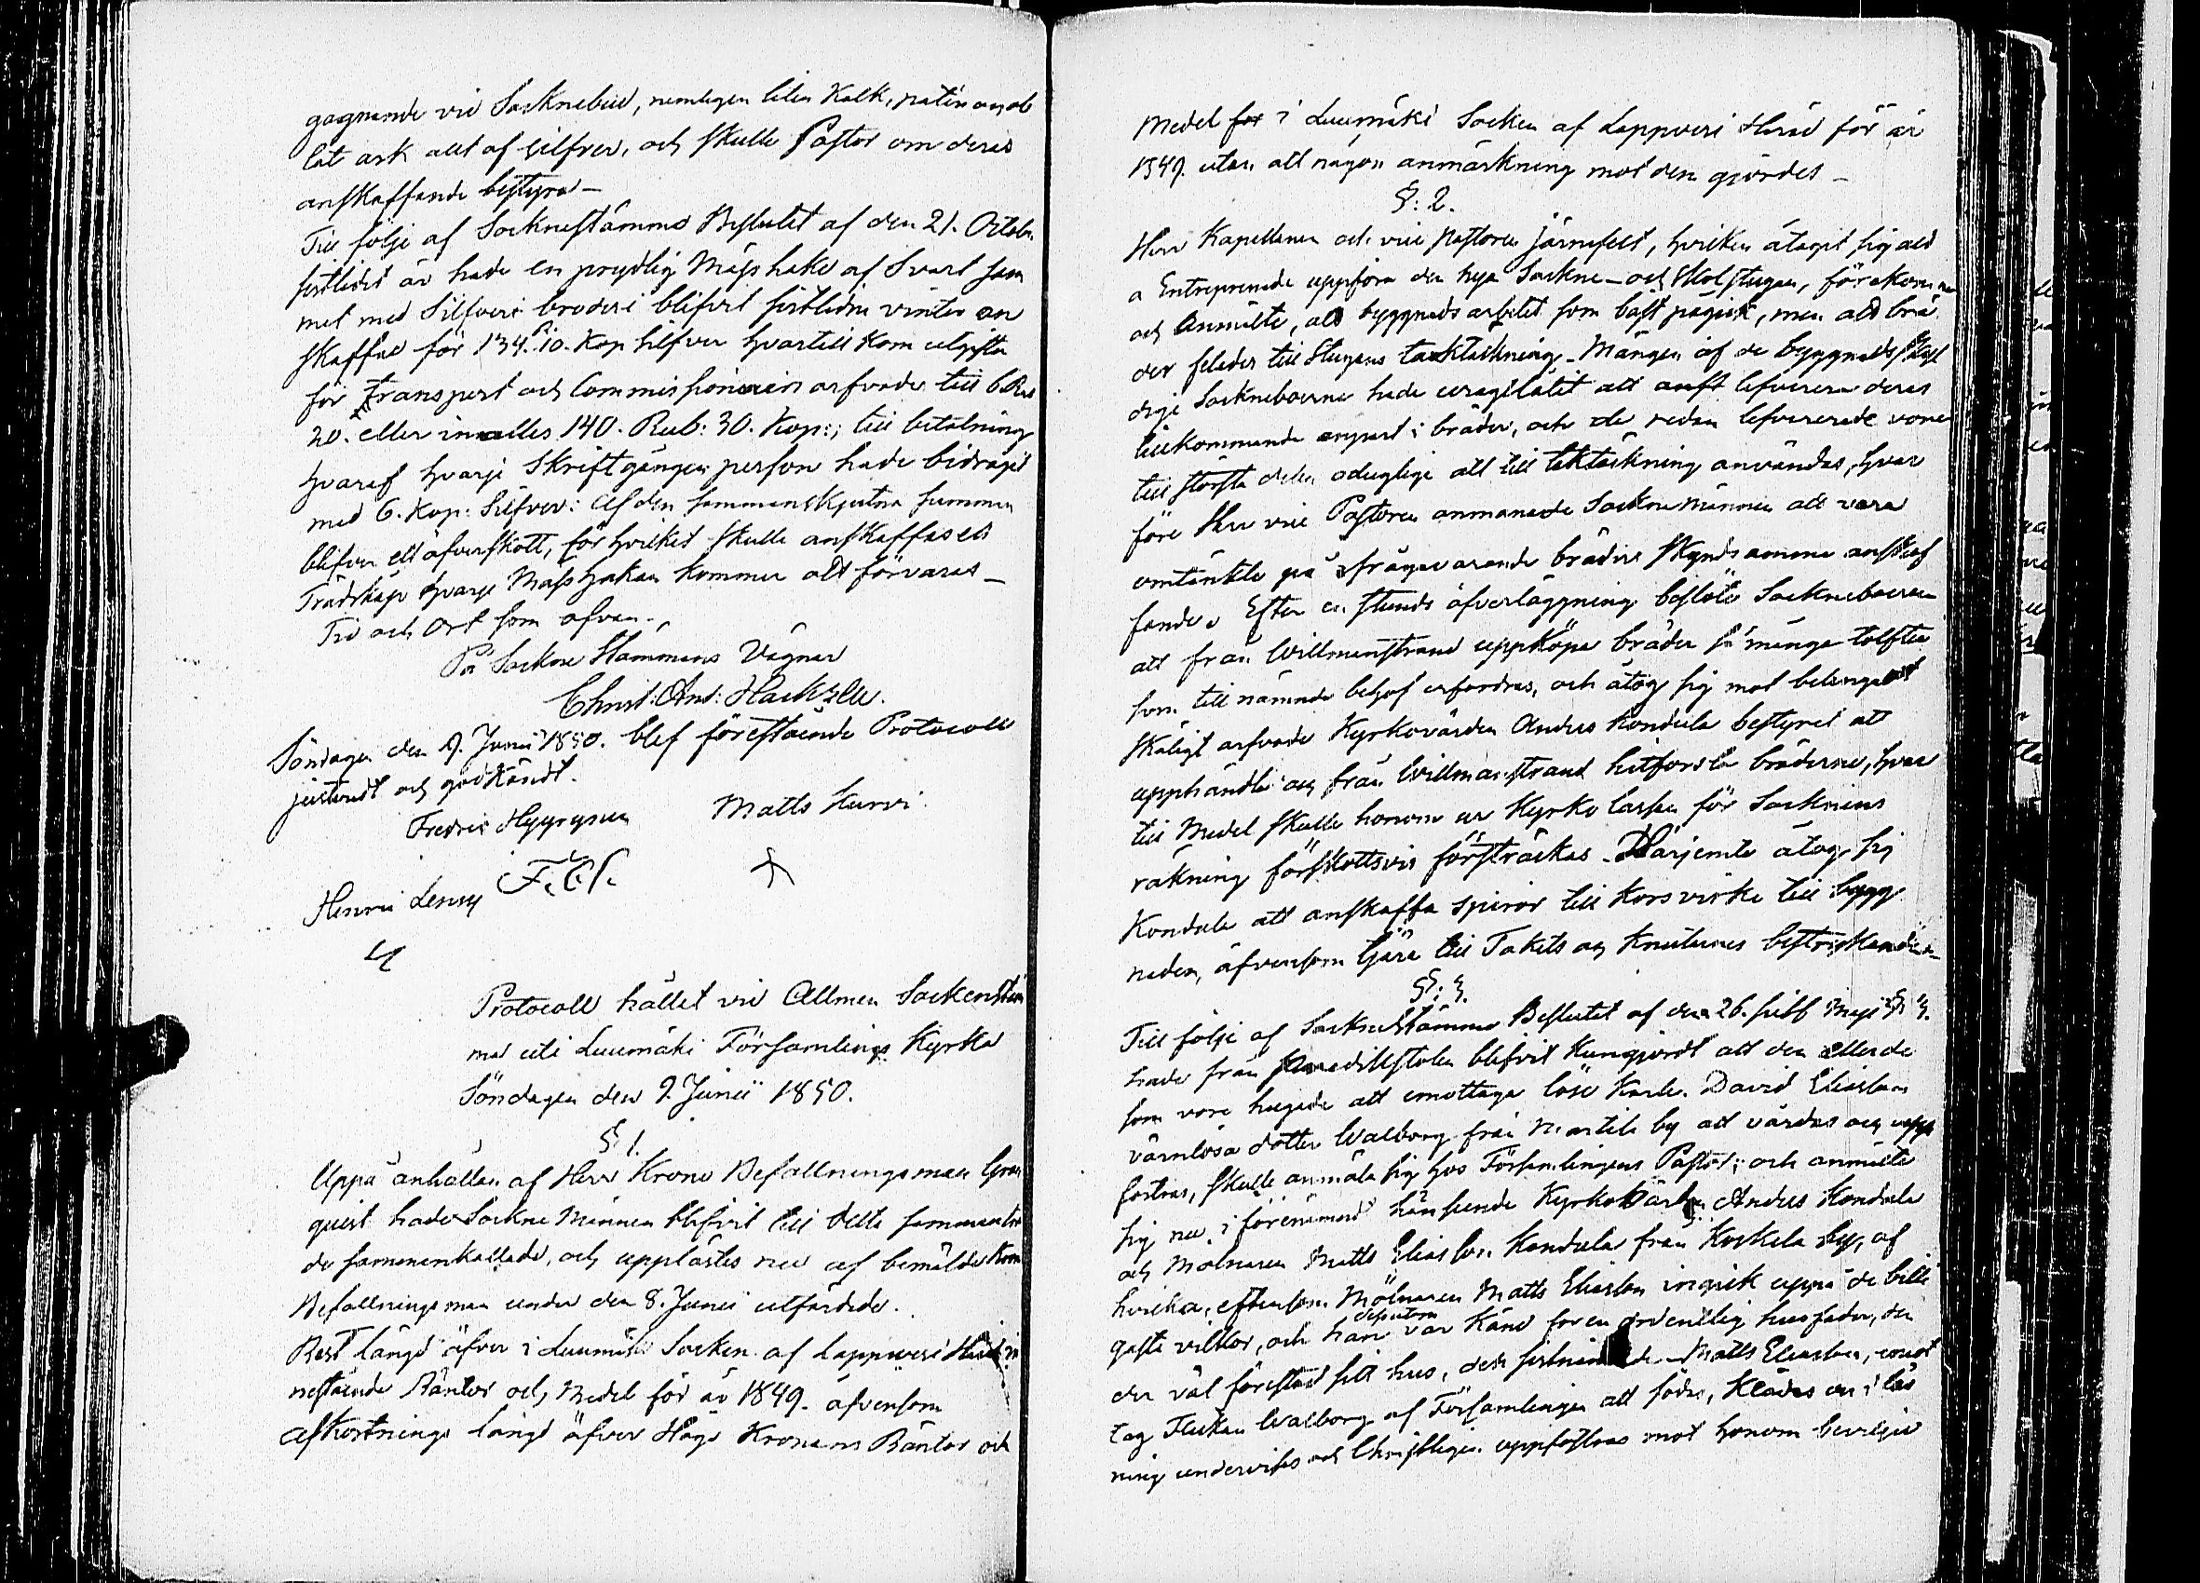 gagnande vid Socknebud, nemligen liten Kalk, patén och ob
lat ask allt af Silfver, och skulle Pastor om deras
anskaffande bestyra —
Till följe af Socknestämmo Beslutet af den 21. Octobr.
sistledit år hade en prydlig Mässhake af Svart Sam
met med Silfver broderi blifvit sistledne vinter an
skaffad för 134. R. 10. Kop silfver hvartill kom utgifter
för transport och Commissionairs arfvode till 6 Rub
20. eller inalles 140. Rub: 30. Kop:; till betalning
hvaraf hvarje Skriftgången person hade bidragit
med 6. Kop: Silfver: Af den sammanskjutna summan
blifver ett öfverskott, för hvilket skulle anskaffas ett
Trädskåp hvari Mässhaken kommer att förvaras —
Tid och Ort som ofvan.
På Sockne Stämmans Vägnar
Christ: Ant: Hackzell.
Söndagen den 9. Junii 1850. blef förestående Protocoll
justeradt och godkändt.
Fredric Hyyrynen Matts Hurvi
Henric Lensu F. E. S.
Protocoll hållet vid Allmen Sockenstäm
ma uti Luumäki Församlings Kyrka
Söndagen den 9. Junii 1850.
§ 1.
Uppå anhållan af Herr Krono Befallningsman Gran
quist hade Sockne Männen blifvit till detta sammanträ
de sammankallade, och upplästes nu af bemälde Krono
Befallningsman under den 8. Junii utfärdade.
Rest längd öfver i Luumäki Socken af Lappvesi Härad in
nestående Räntor och Medel för år 1849. äfvensom
Afkortnings längd öfver Höga Kronans Räntor och
Medel för i Luumäki Socken af Lappvesi Härad för år
1849. utan att någon anmärkning mot dem gjordes —
§: 2.
Herr Kapellanen och vice Pastoren Järnefelt, hvilken åtagit sig att
a Entreprenade uppföra den nya Sockne- och Skolstugan, förekom nu
och Anmälte, att byggnads arbetet som bäst pågick, men att brä
der felades till Stugans taktäckning. Mången af de byggnadsskyl
dige Sockneboerne hade uraglåtit att ännu lefverera deras
tillkommande anpart i bräder, och de redan lefvererade vore
till största delen oduglige att till taktäckning användas, hvar
före Herr vice Pastoren anmanade Sockne männen att vara
omtänkte på ifrågavarande bräders skyndsamma anskaf
fande. Efter en stunds öfverläggning beslöto Sockneboerne
att från Willmanstrand uppköpa bräder så många tolfter
som till nämnde behof erfordras, och åtog sig mot belingadt
skäligt arfvode Kyrkovärden Anders Kondula bestyret att
upphandla och från Willmanstrand hitforsla bräderne, hvar
till Medel skulle honom ur Kyrko Cassan för Socknens
räkning förskottsvis försträckas. Därjemte åtog sig
Kondula att anskaffa spiror till Korsvirke till bygg
naden, äfvensom tjära till Takets och Knutarnes bestrykande.
§: 3.
Till följe af Sockne Stämmo Beslutet af den 26. sistl Maji § 3.
hade från Predikstolen blifvit kungjordt att den eller de
som vore hugade att emottaga löse Karlen David Eliassons
värnlösa dotter Walborg från Martile by att vårdas och upp
fostras, skulle anmäla sig hos Församlingens Pastor; och anmälte
sig nu i förenämnd hänseende Kyrkovärden Anders Kondula
och Mölnaren Matts Eliasson Kondula från Koskela by, af
hvilka, eftersom Mölnaren Matts Eliasson ingick uppå de billi
gaste vilkor, och han dessutom var känd for en ordentlig husfader, den
der väl förestod sitt hus, den sistnämnde Matts Eliasson, emot
tog Flickan Walborg af Församlingen att födas, klädas och i läs
ning undervisas och Christeligen uppfostras mot honom beviljad